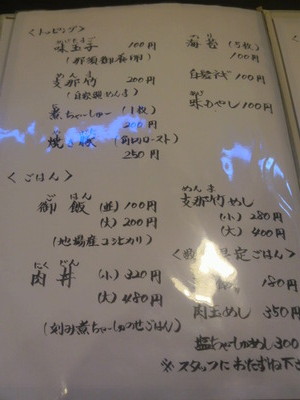 <トッピング>
味玉子 100円
(那須御養卵)
支那竹 200円
(自家製めんま)
煮ちゃーしゅー (1枚)
200円
焼豚 (角切ロースト)
250円
<ごはん>
御飯 (並) 100円
(大) 200円
(地場産コシヒカリ)
肉丼 (小) 320円
(大) 480円
(刻み煮ちゃーしゅのせごはん)
海苔 (5枚)
100円
白髪ネギ 100円
味もやし 100円
支那竹めし
(小) 280円
(大) 400円
<数 定ごはん>
180円
肉玉めし 350円
塩ちゃーしゅめし 300
※スタッフにおたずね下さ